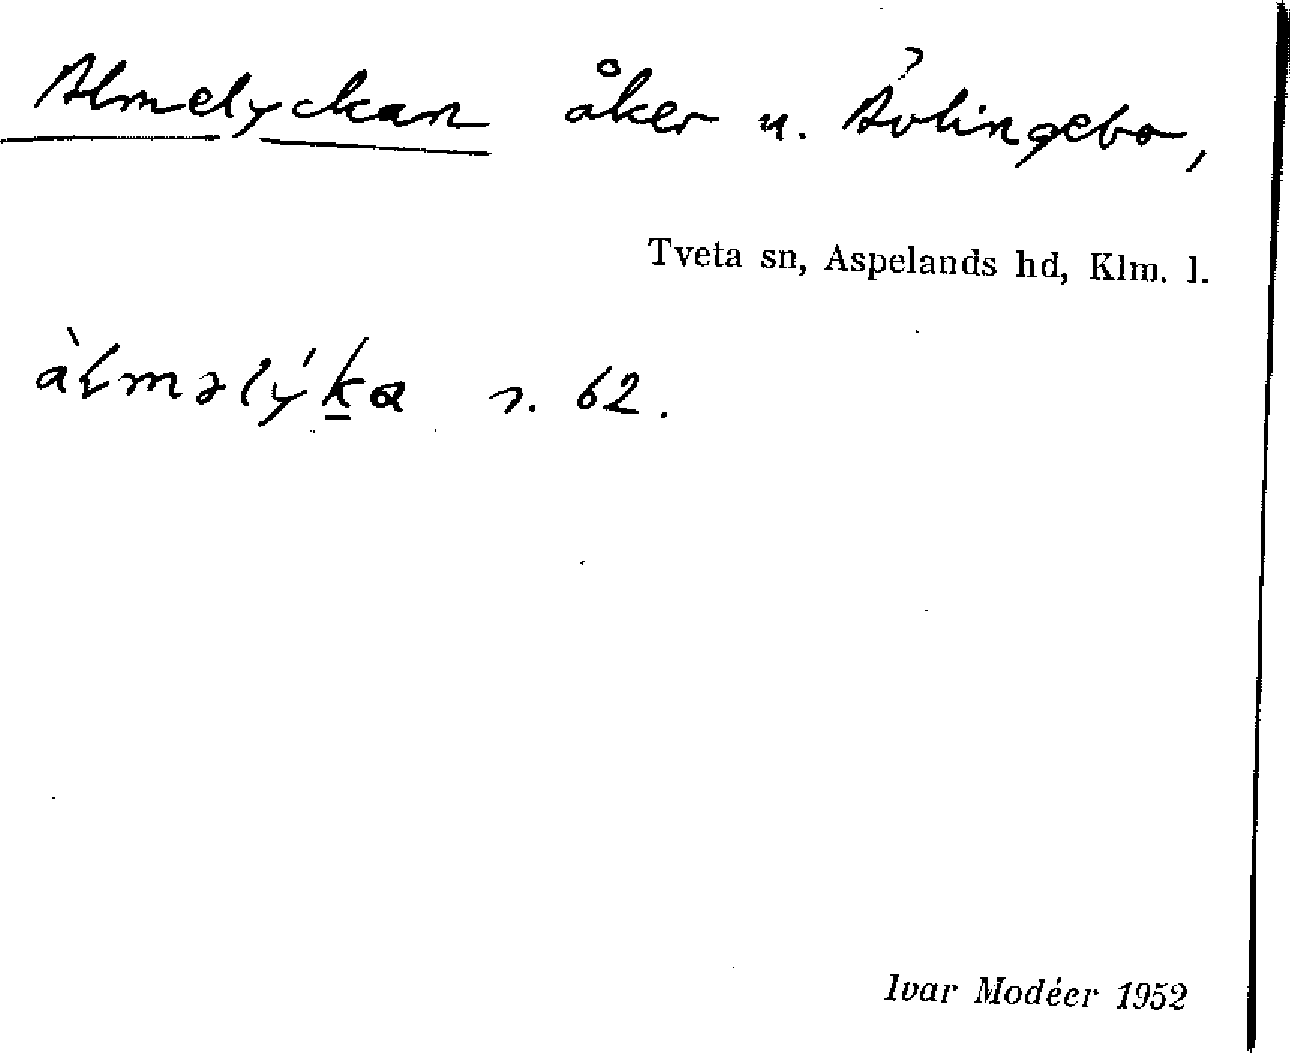 Almelyckan åker u. Åvlingebo,
Tveta sn, Aspelands hd, Klm. l.
àlmǝlýk̲a s. 62.
Ivar Modéer 1952